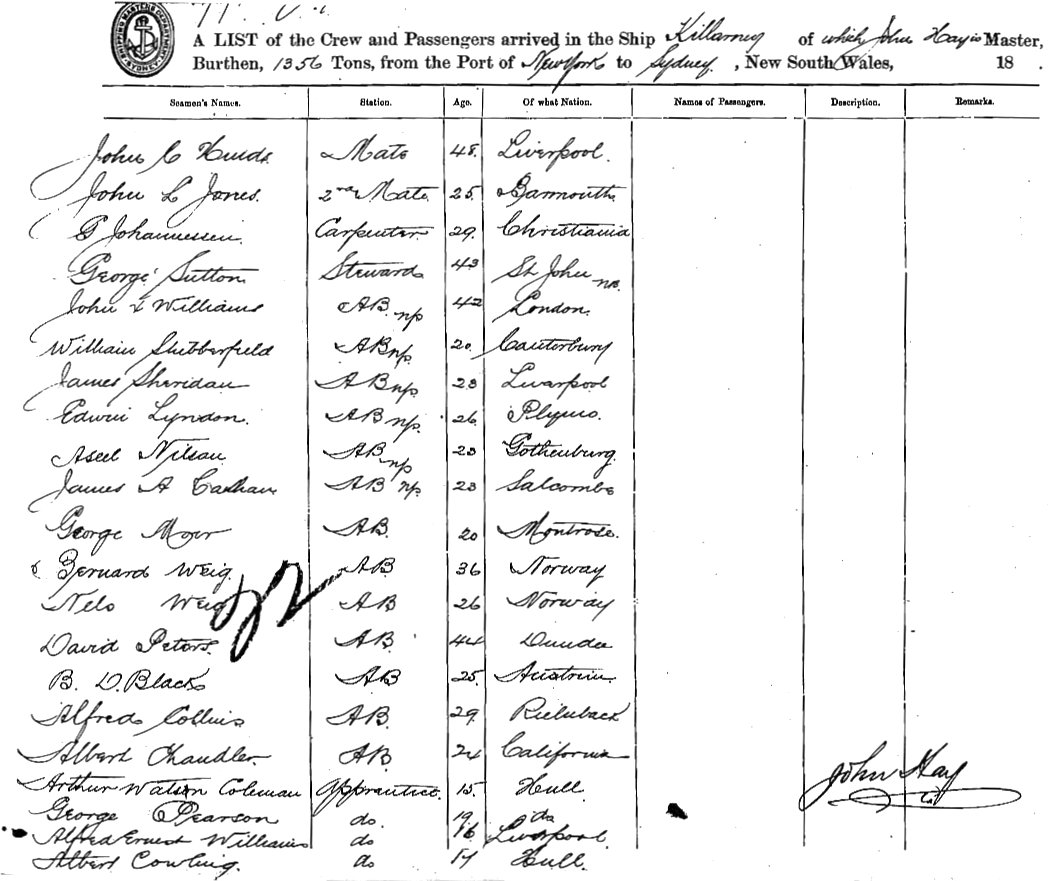 A LIST of the Crew and Passengers arrived in the Ship Killarney of which John Hay is Master,
Burthen, 1356 Tons, from the Port of New York to Sydney, New South Wales, 18 .
Seamen's Names. Station. Age. Of what Nation. Names of Passengers. Description. Remarks.
John C Hinds Mate 48. Liverpool.
John L Jones. 2nd Mate. 25. Barmouth.
G Johannessen. Carpenter. 29. Christiania
George Sutton Steward 43 St John NB.
John Williams AB np 42 London.
William Stubberfield AB np. 20. Canterbury
James Sheridan AB np. 23 Liverpool
Edwin Lyndon. AB np. 26. Plymo.
Nilsan. AB np 23 Gothenburg.
James A AB np. 23 Salcombe
George AB. 20 Montrose.
Bernard Weig. AB 36 Norway
Nels Weig AB 26 Norway
David Peters. AB 44 Dundee
B. D. Black AB 25.
Alfred Collins AB. 29.
Albert Chandler. AB. 24 California
Arthur Watson Coleman Apprentice. 15. Hull.
John Hay
George Pearson do. 19 do
Alfred Ernest Williams do 16 Liverpool.
Albert Cowling. do 17 Hull.